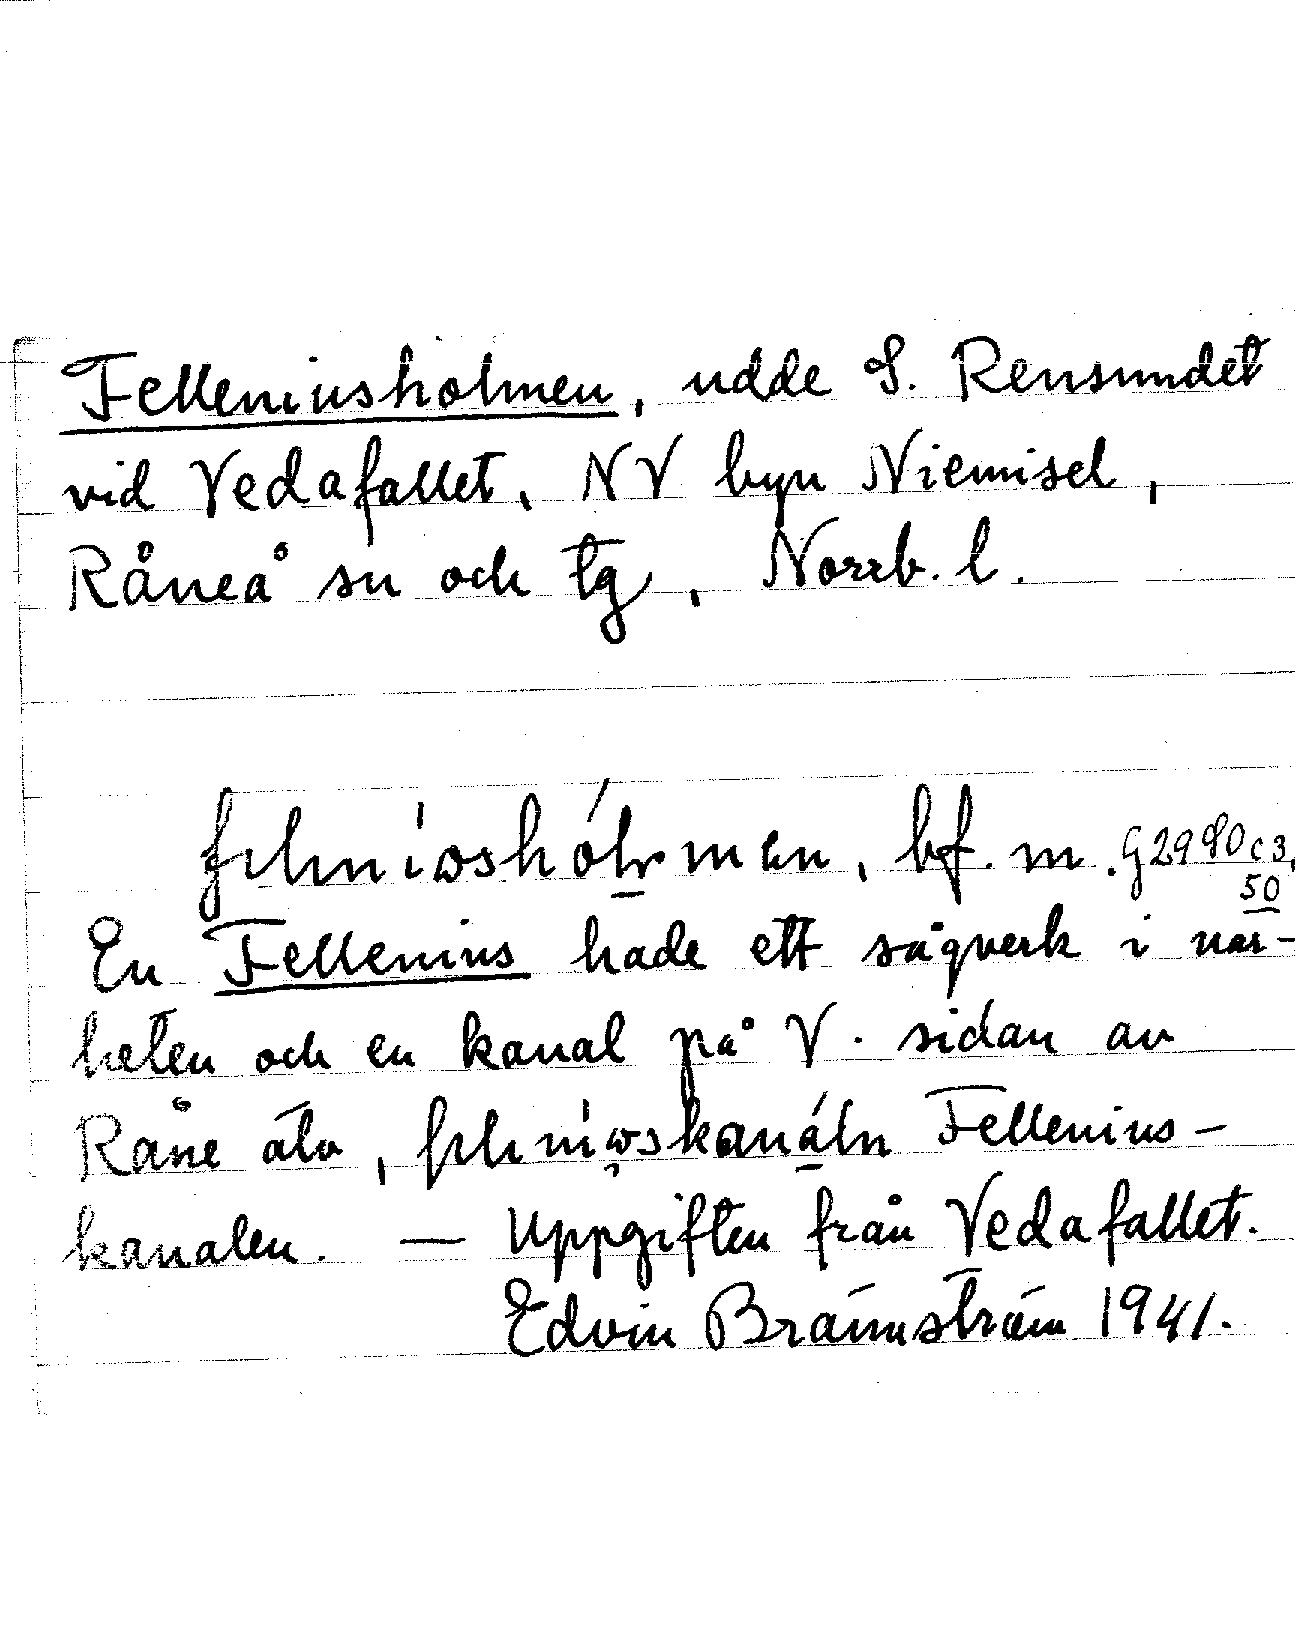 Felleniusholmen, udde S. Rensundet
vid Vedafallet, NV byn Niemisel,
Råneå sn och tg, Norrb. l.
bf. m. G2980c3,
50
En Fellenius hade ett sågverk i när-
heten och en kanal på V. sidan av
Råne älv, Fellenius-
kanalen. — Uppgiften från Vedafallet.
Edvin Brännström 1941.